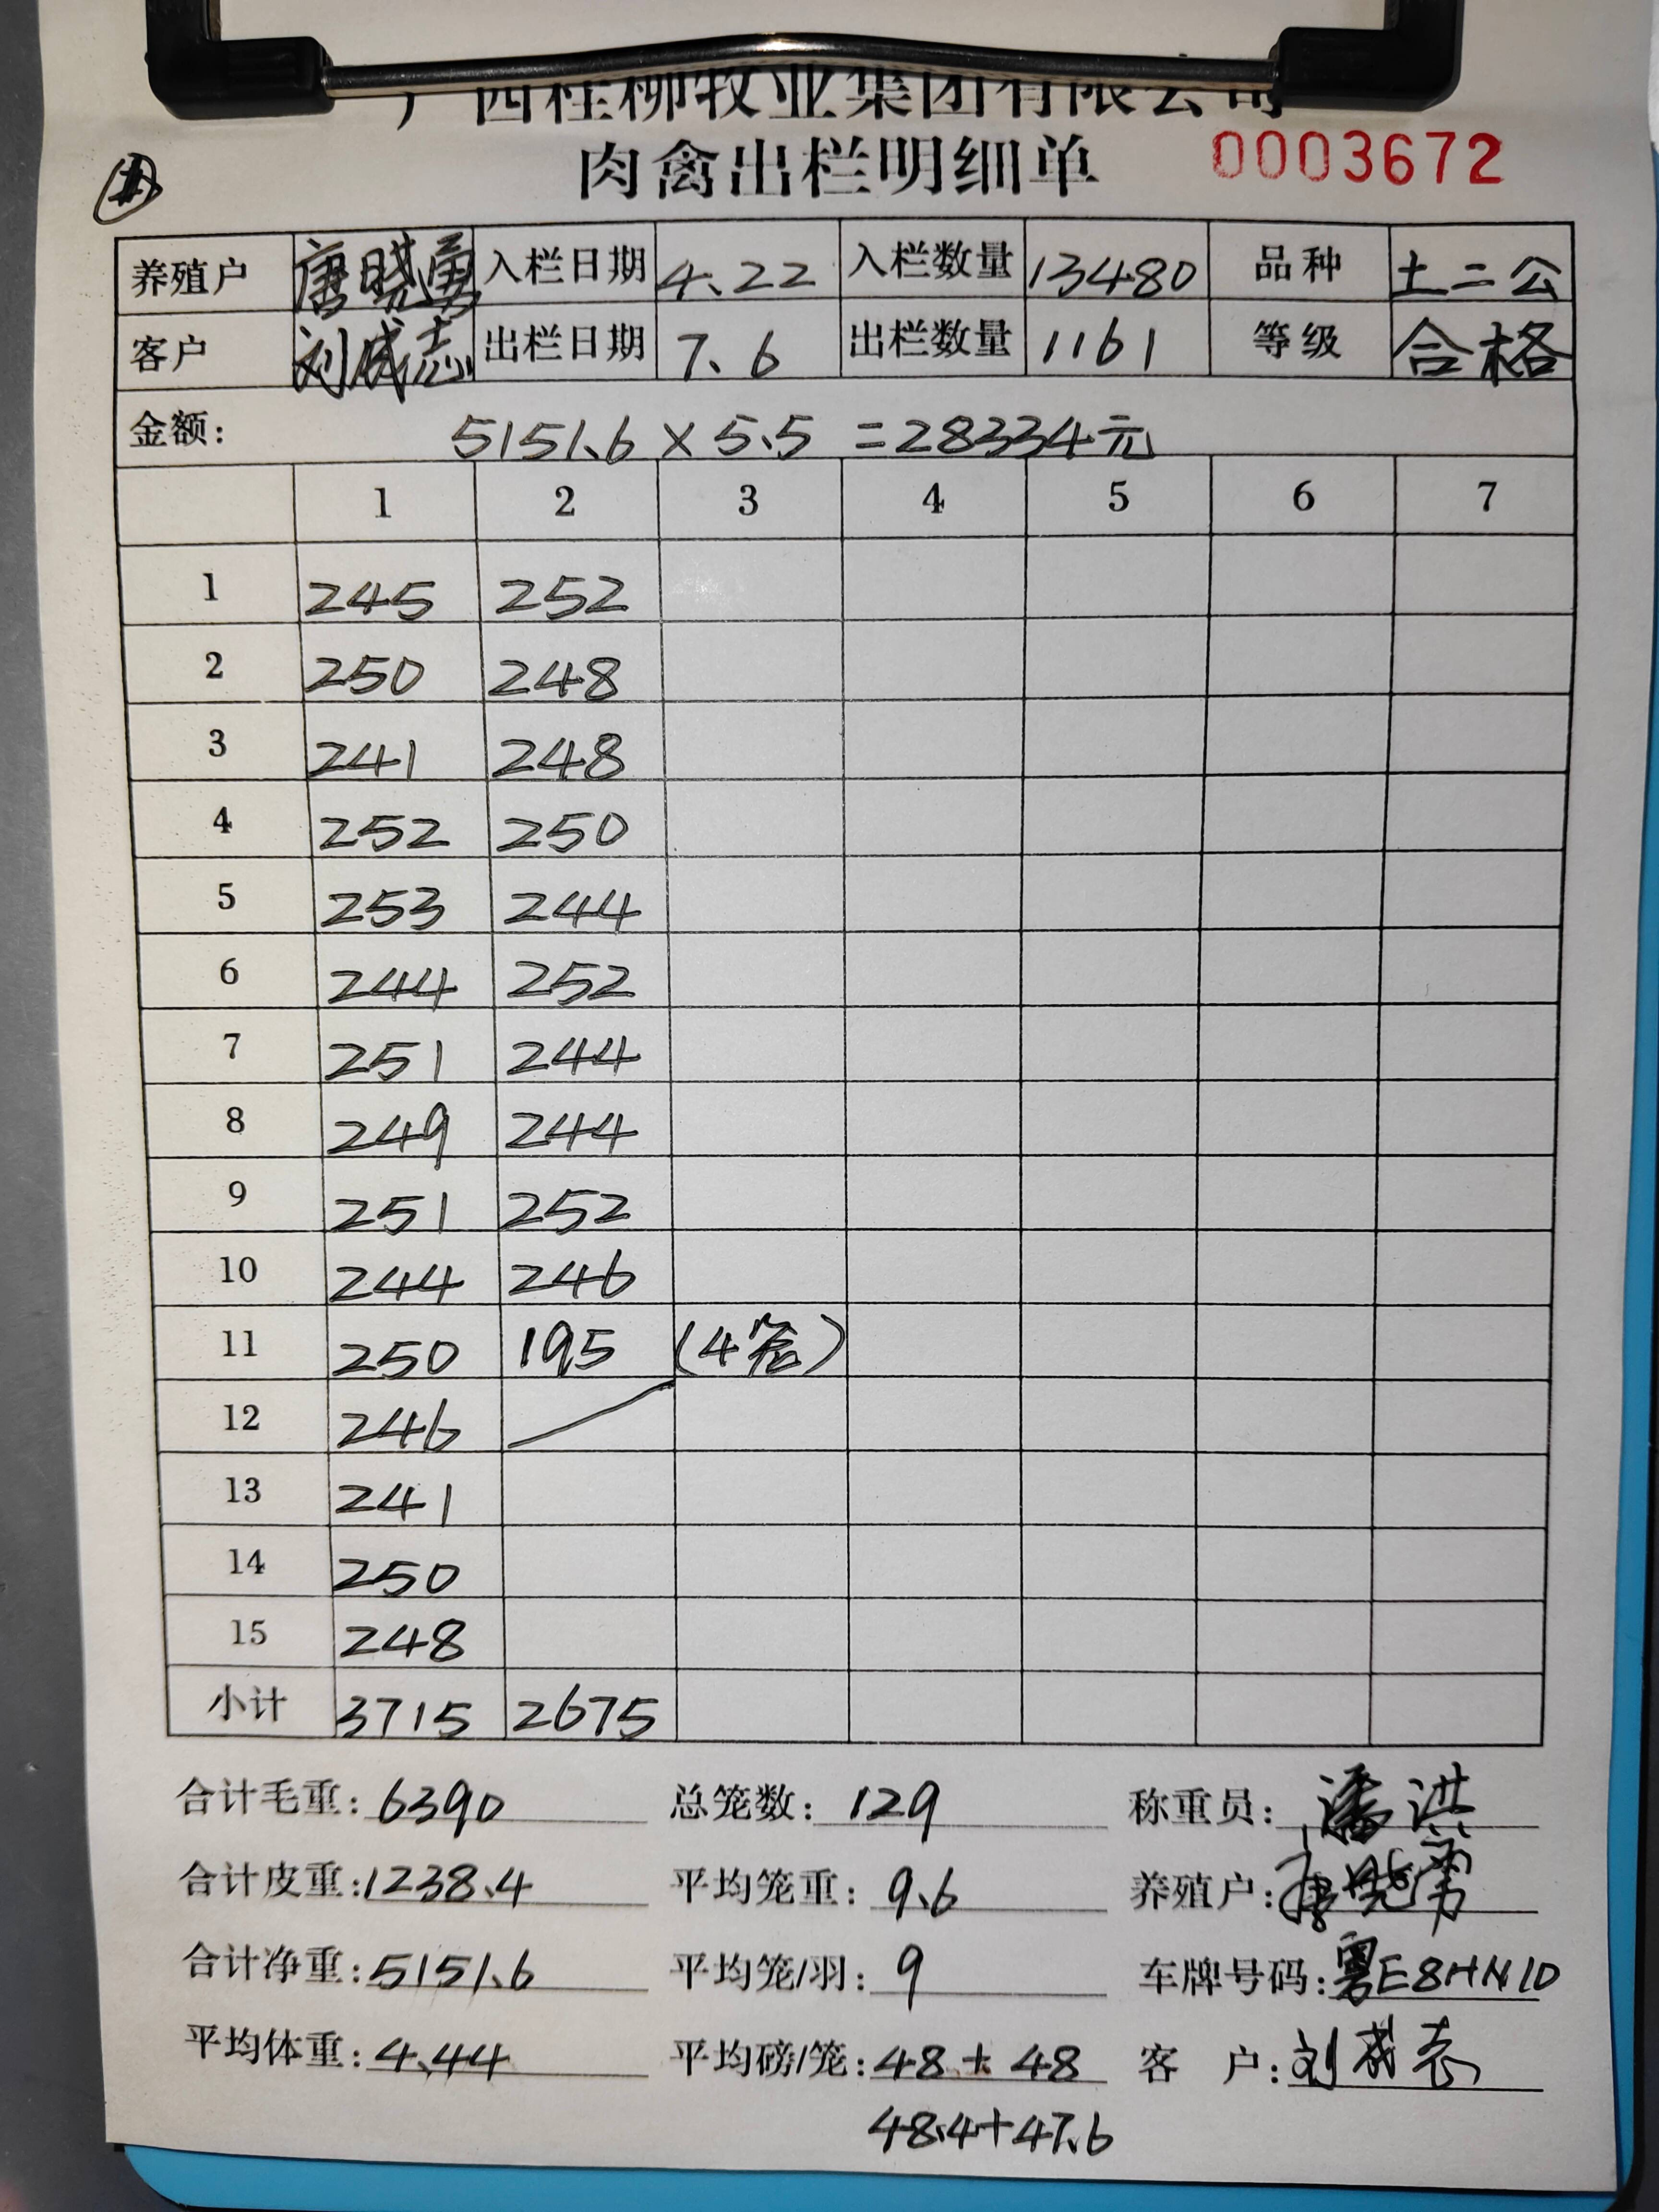 广西桂柳牧业集团有限公司
肉禽出栏明细单 0003672
养殖户 唐晓勇 入栏日期 4.22 入栏数量 13480 品种 土二公
客户 刘成志 出栏日期 7.6 出栏数量 1161 等级 合格
金额: 5151.6 × 5.5 = 28334元
1 2 3 4 5 6 7
1 245 252
2 250 248
3 241 248
4 252 250
5 253 244
6 244 252
7 251 244
8 249 244
9 251 252
10 244 246
11 250 195 (4笼)
12 246
13 241
14 250
15 248
小计 3715 2675
合计毛重: 6390 总笼数: 129 称重员: 潘洪
合计皮重: 1238.4 平均笼重: 9.6 养殖户: 唐晓勇
合计净重: 5151.6 平均笼/羽: 9 车牌号码: 粤E8HN10
平均体重: 4.44 平均磅/笼: 48 + 48 客户: 刘成志
48.4+47.6